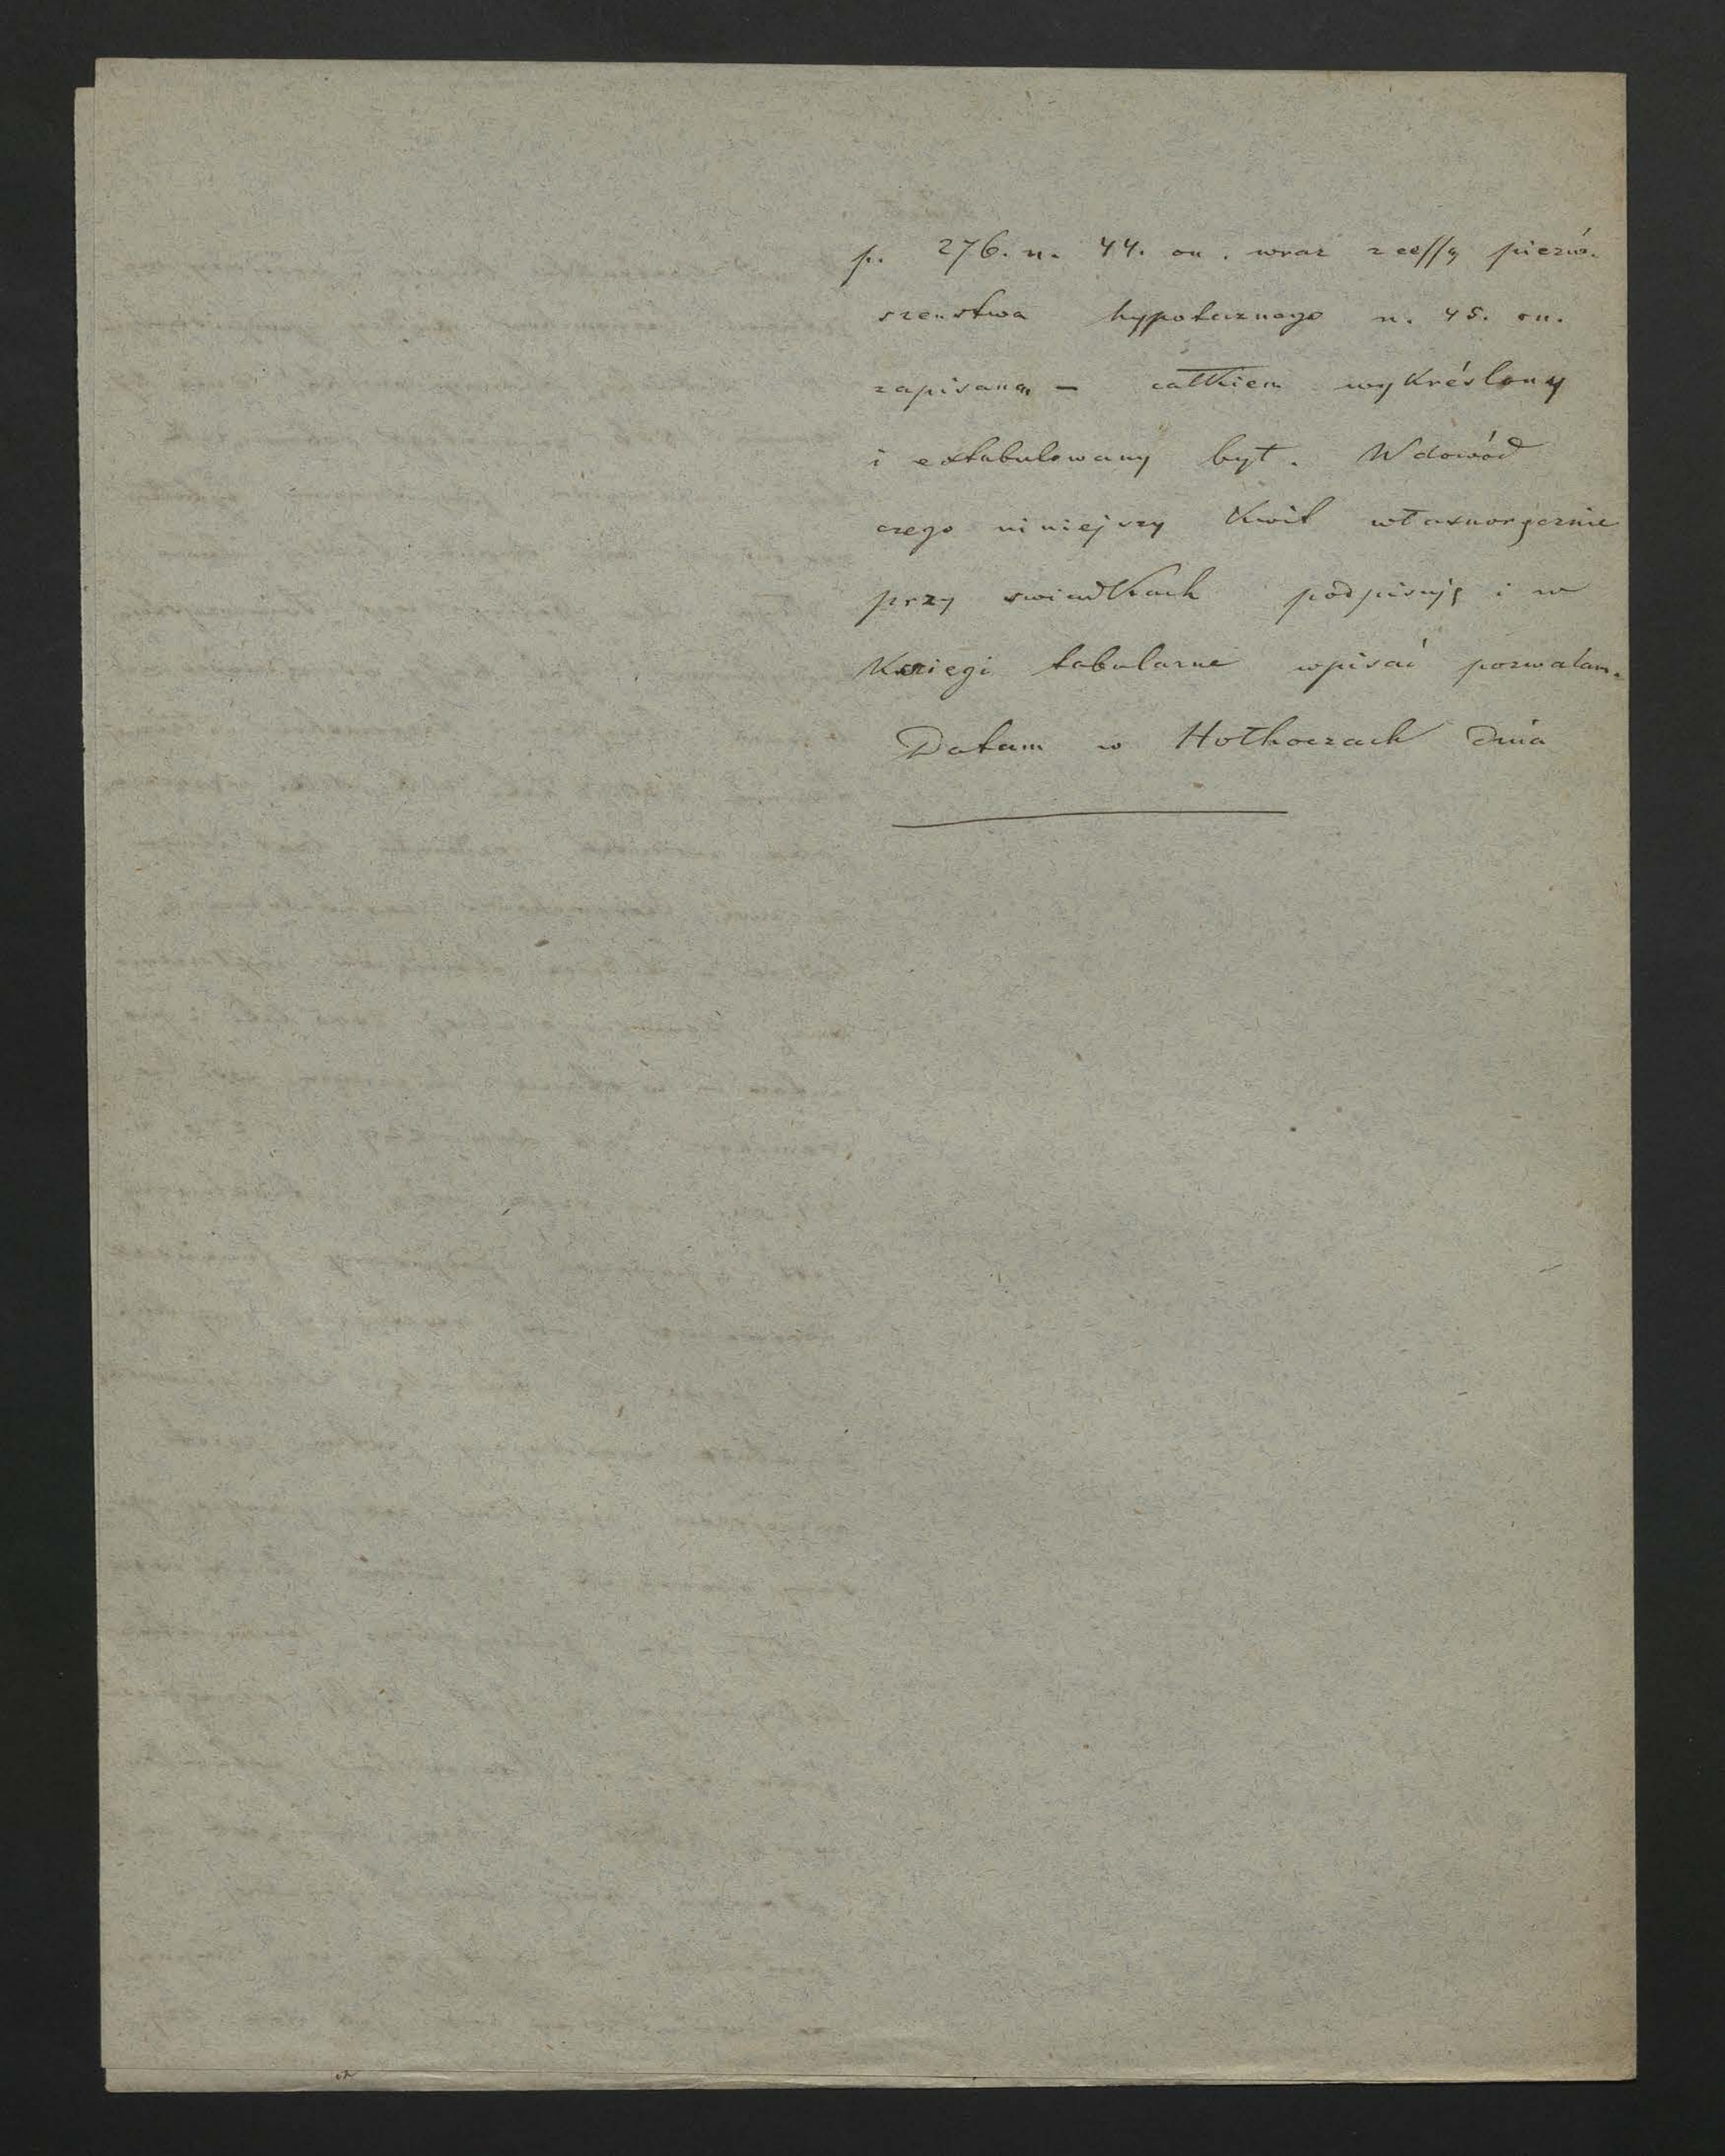 p. 276. n. 44. on. wraz z cessyą pierw-
szenstwa hypotecznego n. 45. on.
zapisana — całkiem wykréślony
i extabulowany był. W dowód
czego niniejszy Kwit własnoręcznie
przy swiadkach podpisuję i w
Księgi tabularne wpisać pozwalam.
Datum w Hołhoczach dnia